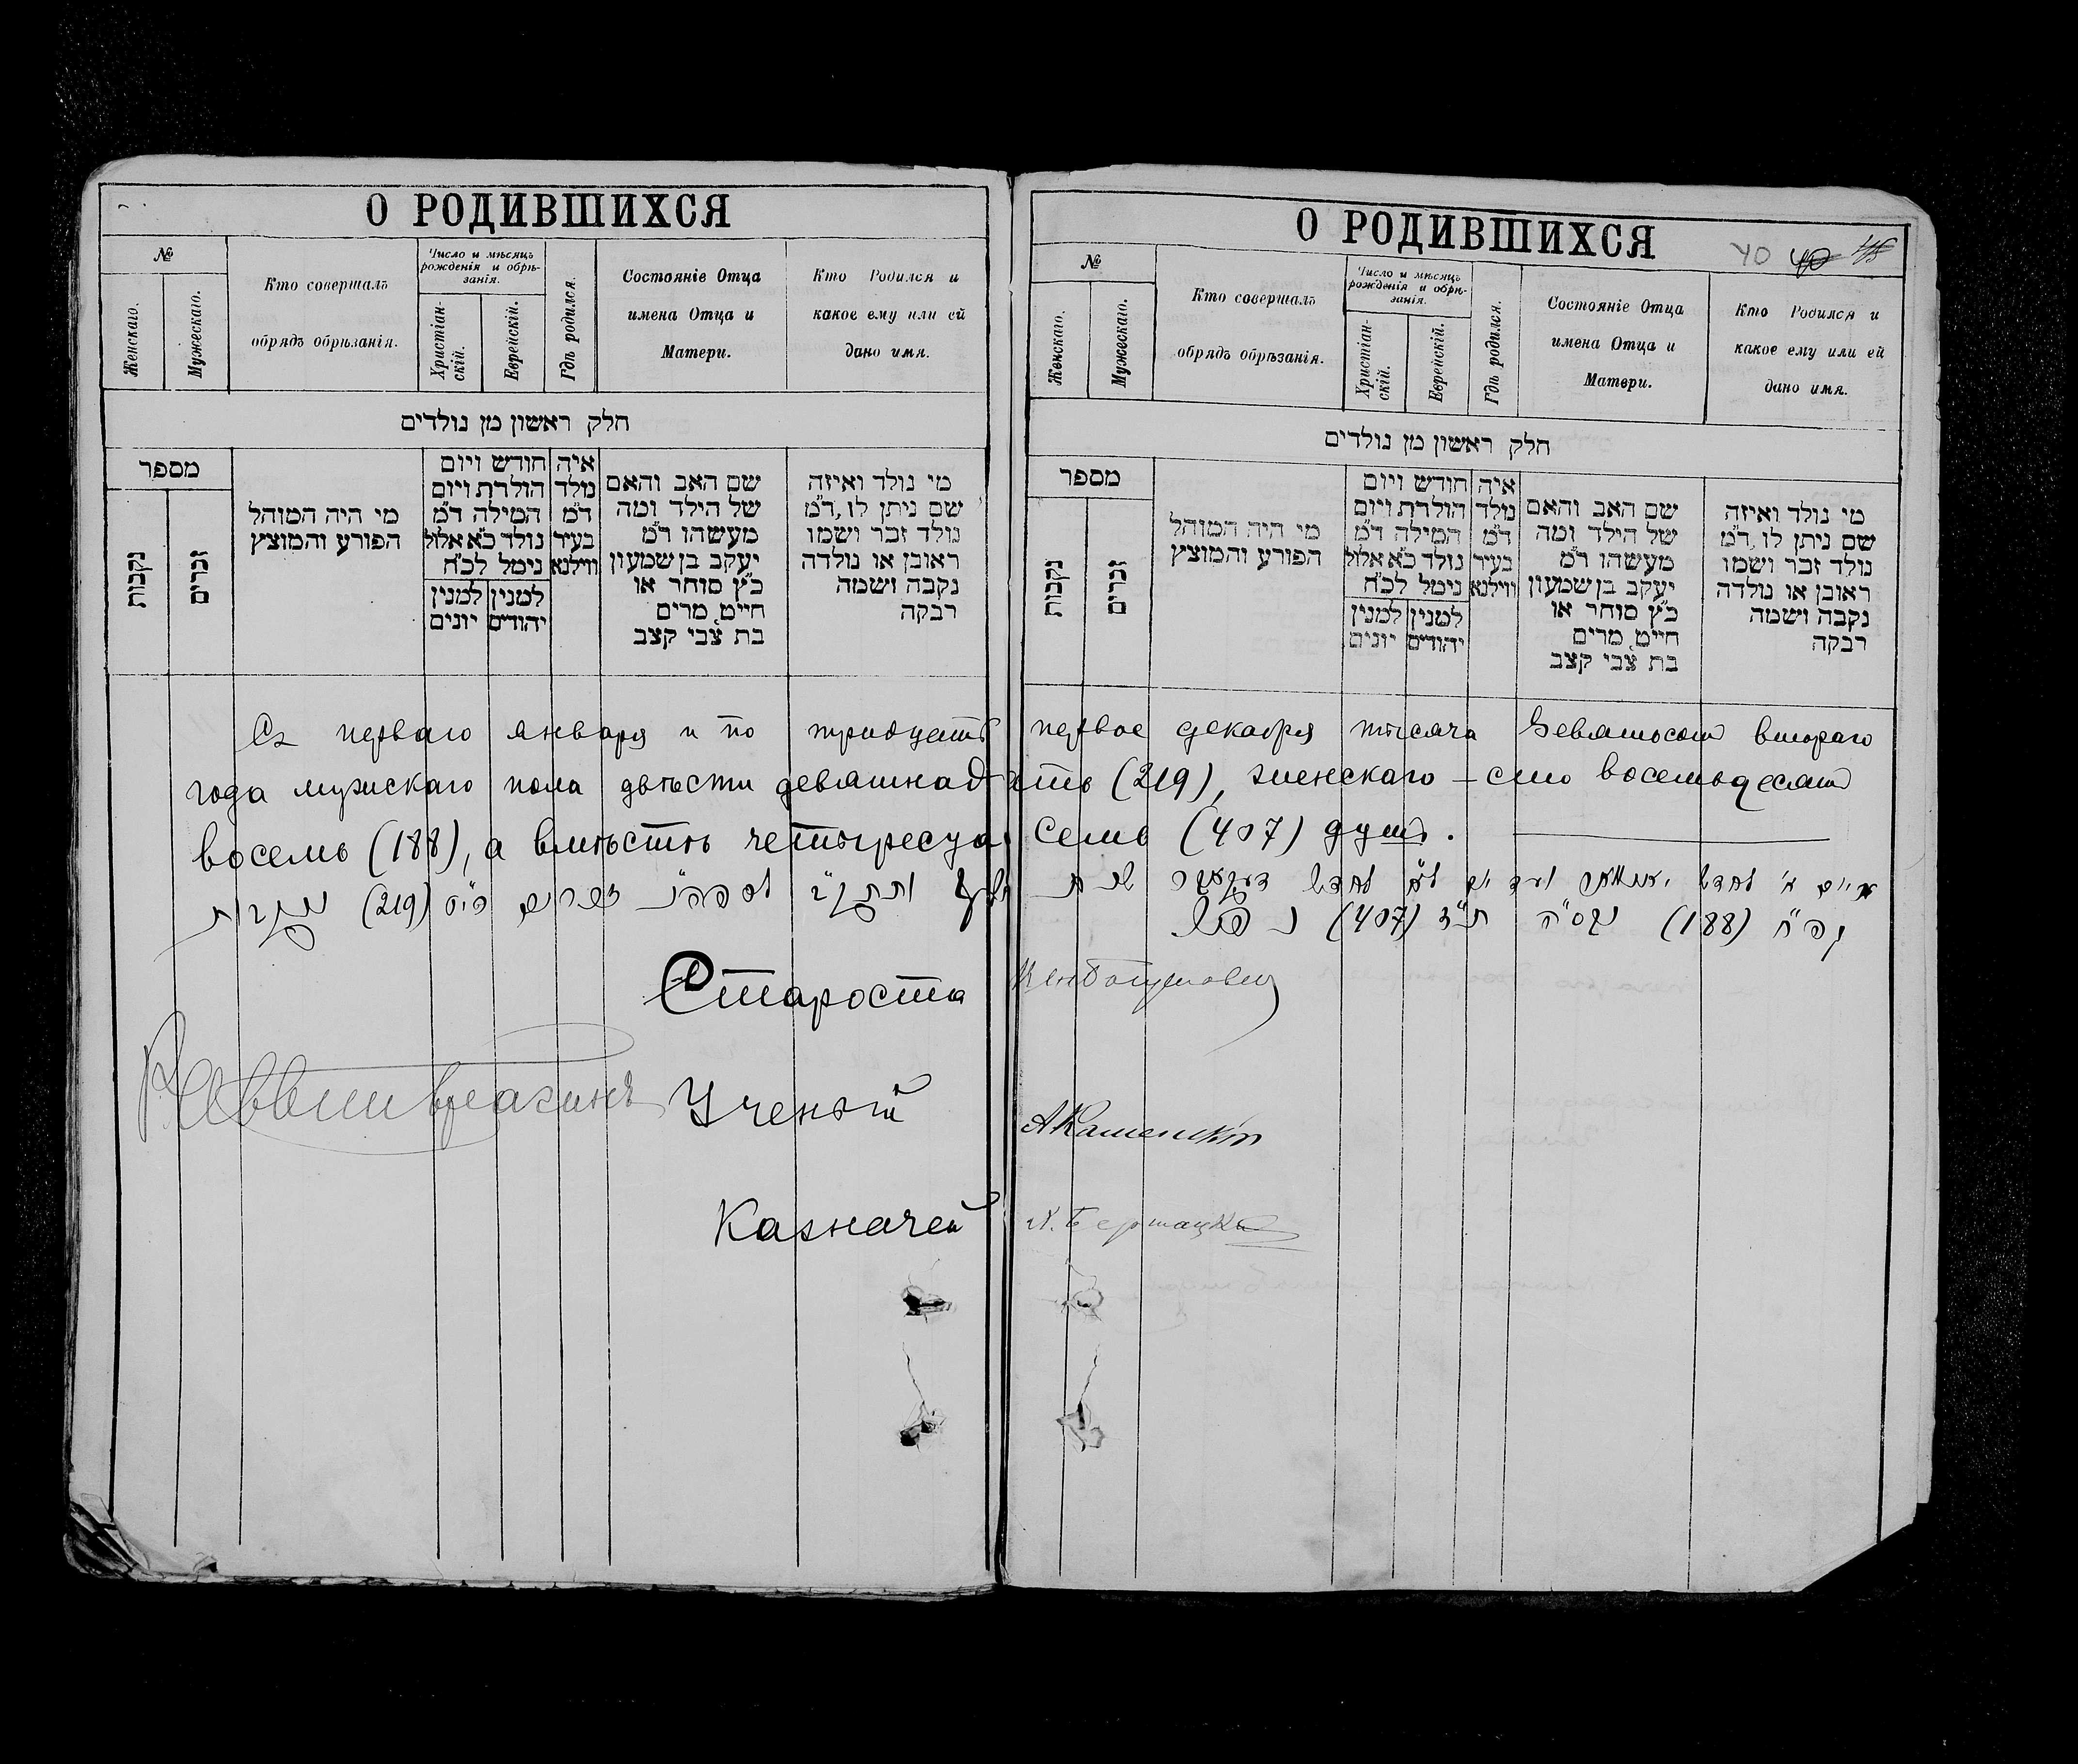 О РОДИВШИХСЯ
№
Женскаго.
Мужескаго.
Кто совершалъ
обрядъ обрѣзанія.
Число и мѣсяцъ
рожденія и обрѣ-
занія.
Христіан-
скій.
Еврейскій.
Гдѣ родился.
Состояніе Отца
имена Отца и
Матери.
Кто Родился и
какое ему или ей
дано имя.
חלק ראשון מן נולדים
מספר
נקבות
זכרים
מי היה המוהל
הפורע והמוצץ
חודש ויום
הולדת ויום
המילה ד״מ
נולד כ״א אלול
נימל לכ״ח
למנין
יונים
למנין
יהודים
איה
נולד
ד״מ
בעיר
ווילנא
שם האב והאם
של הילד ומה
מעשהו ד״מ
יעקב בן שמעון
כ״ץ סוחר או
חייט, מרים
בת צבי קצב
מי נולד ואיזה
שם ניתן לו, ד״מ
נולד זכר ושמו
ראובן או נולדה
נקבה ושמה
רבקה
О РОДИВШИХСЯ
40 40
№
Женскаго.
Мужескаго.
Кто совершалъ
обрядъ обрѣзанія.
Число и мѣсяцъ
рожденія и обрѣ-
занія.
Христіан-
скій.
Еврейскій.
Гдѣ родился.
Состояніе Отца
имена Отца и
Матери.
Кто Родился и
какое ему или ей
дано имя.
חלק ראשון מן נולדים
מספר
נקבות
זכרים
מי היה המוהל
הפורע והמוצץ
חודש ויום
הולדת ויום
המילה ד״מ
נולד כ״א אלול
נימל לכ״ח
למנין
יונים
למנין
יהודים
איה
נולד
ד״מ
בעיר
ווילנא
שם האב והאם
של הילד ומה
מעשהו ד״מ
יעקב בן שמעון
כ״ץ סוחר או
חייט, מרים
בת צבי קצב
מי נולד ואיזה
שם ניתן לו, ד״מ
נולד זכר ושמו
ראובן או נולדה
נקבה ושמה
רבקה
Съ перваго января и по тридцать первое декабря тысяча девятьсот втораго
года мужскаго пола двѣсти девятнадцать (219), женскаго – сто восемьдесят
восемь (188), а вмѣстѣ четыреста семь (407) душъ.
מיום א׳ לחדש יאנואר ועד יום ל״א לחדש דעקאבר שנת
זכרים רי״ט (219) נקבות
קפ״ח (188) ובס״ה ת״ז (407) נפש
Староста
Раввинъ Ученый А Каменскій
Казначей